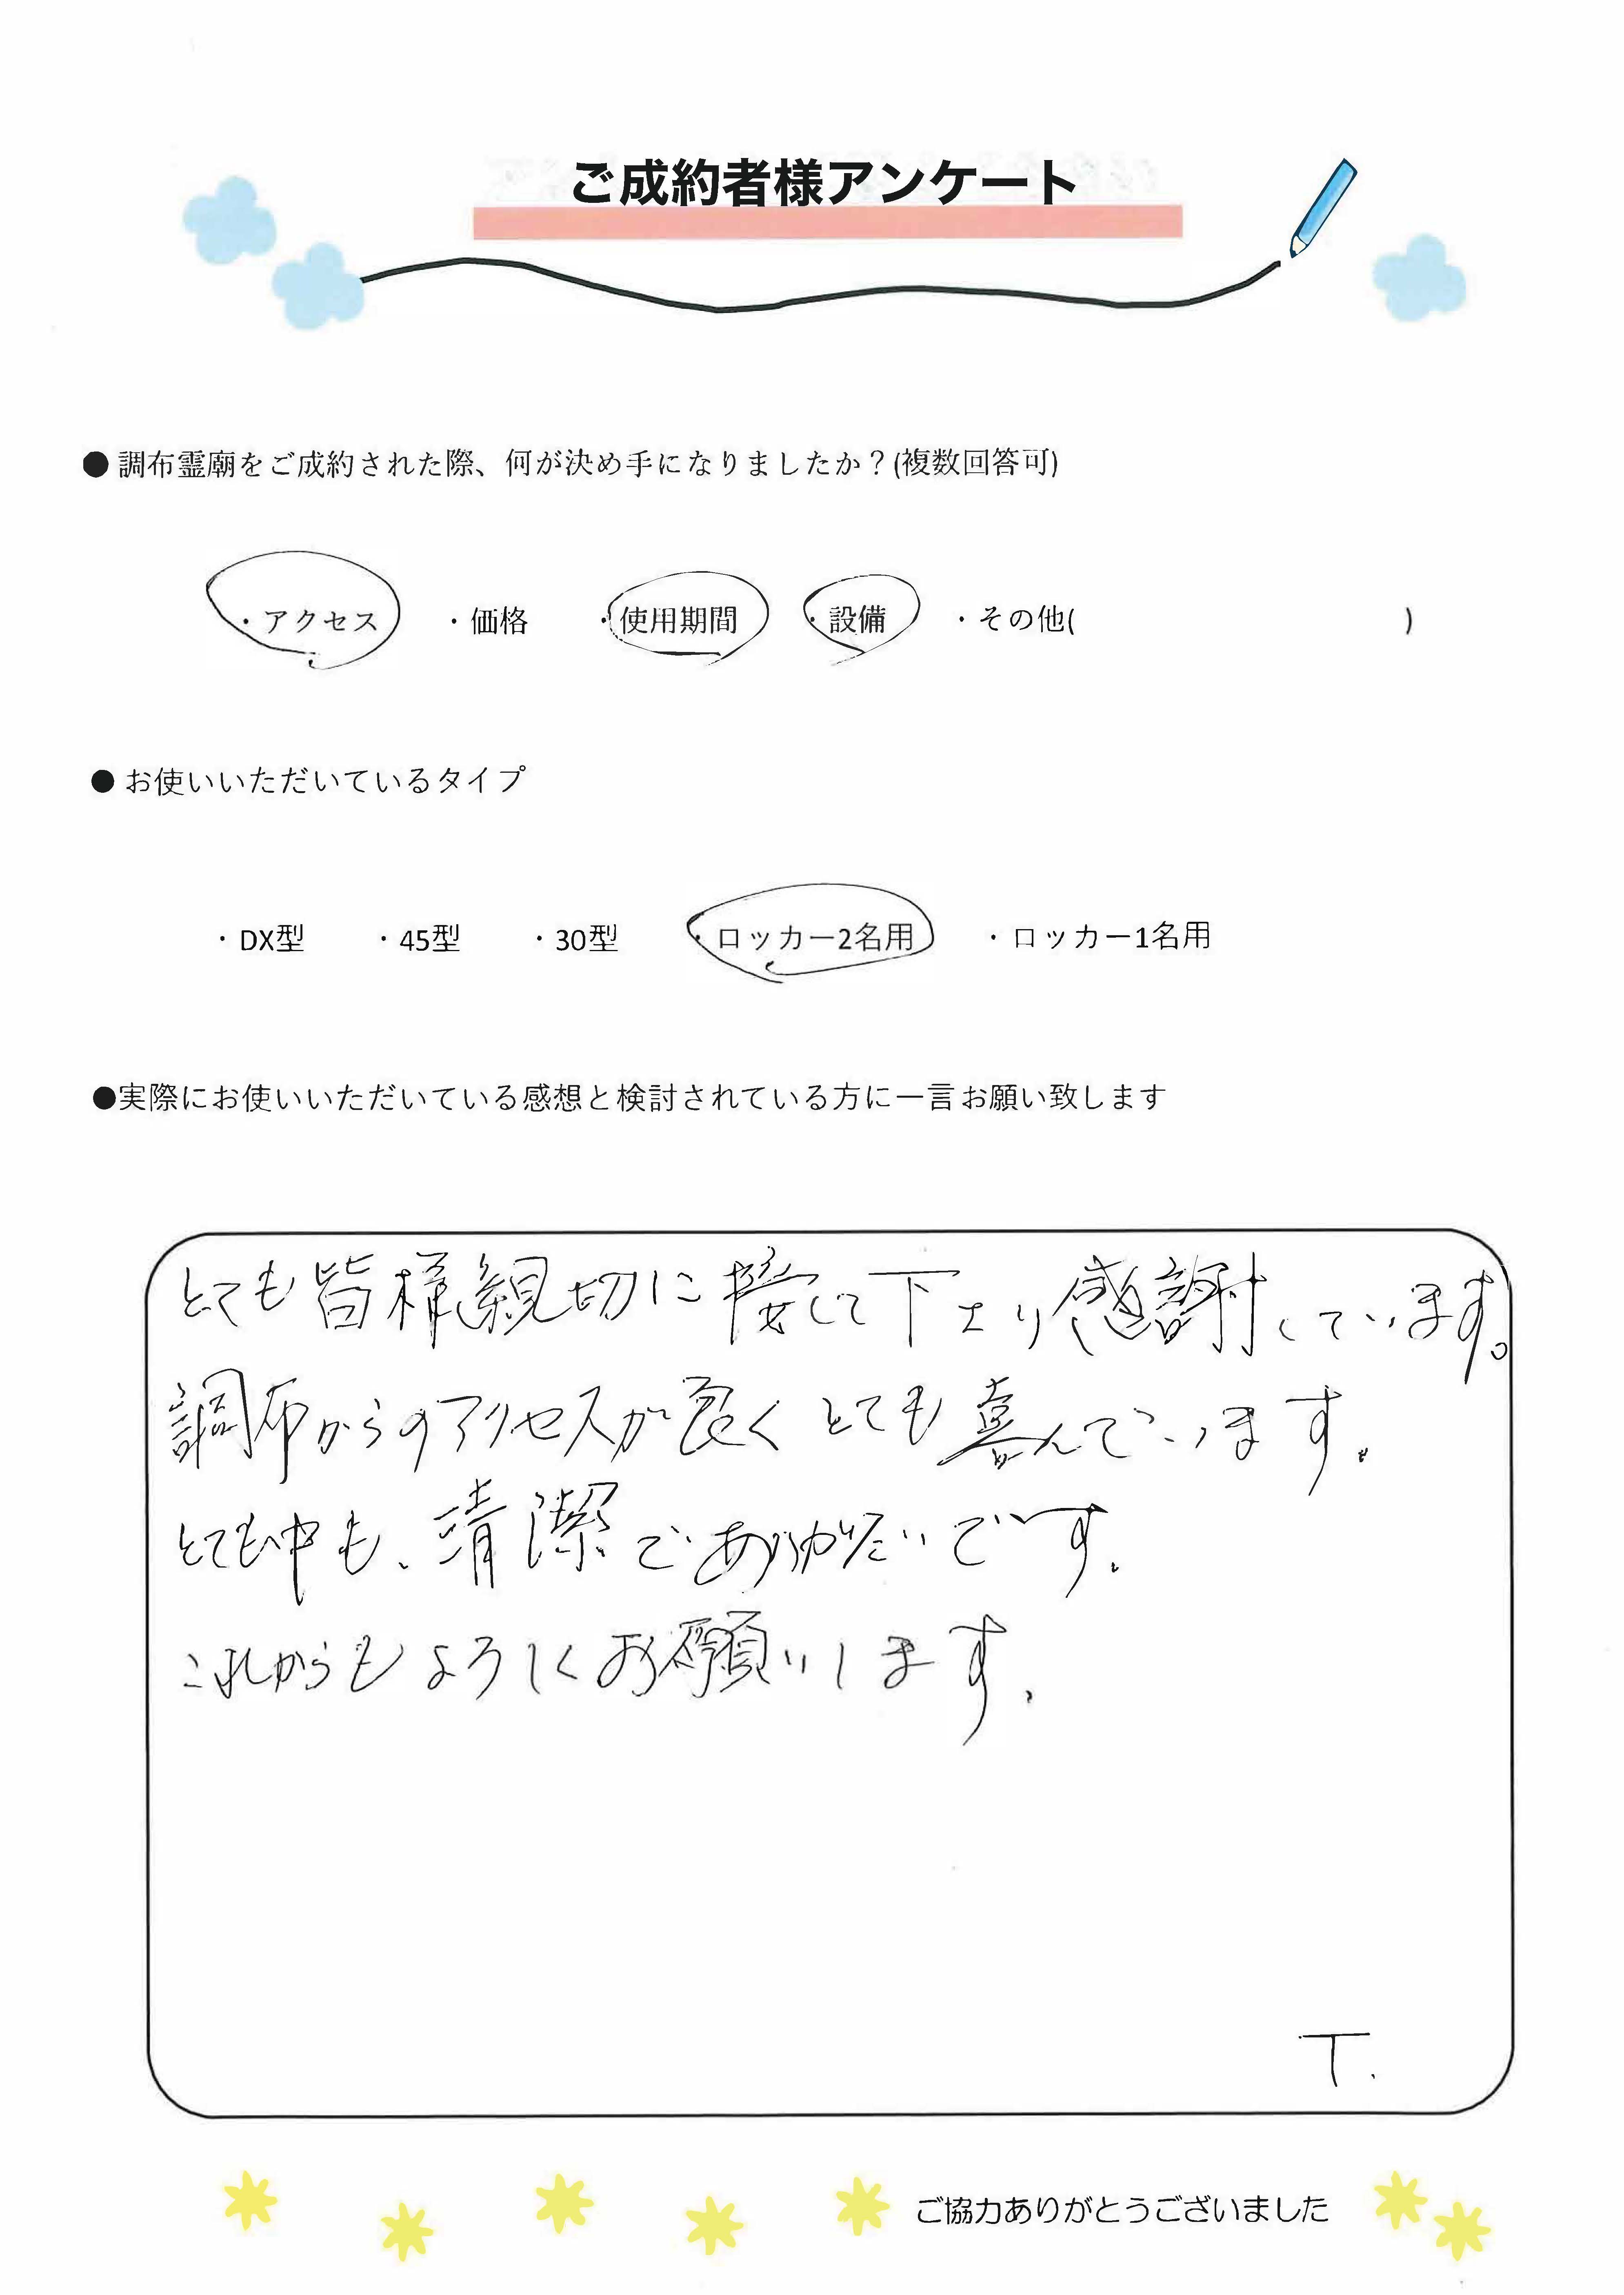 ご成約者様アンケート
● 調布霊廟をご成約された際、何が決め手になりましたか？(複数回答可)
・アクセス ・価格 ・使用期間 ・設備 ・その他( )
● お使いいただいているタイプ
・DX型 ・45型 ・30型 ・ロッカー2名用 ・ロッカー1名用
●実際にお使いいただいている感想と検討されている方に一言お願い致します
とても皆様親切に接して下さり感謝しています。
調布からのアクセスが良くとても喜んでいます。
とても中も、清潔でありがたいです。
これからもよろしくお願いします。
T.
ご協力ありがとうございました